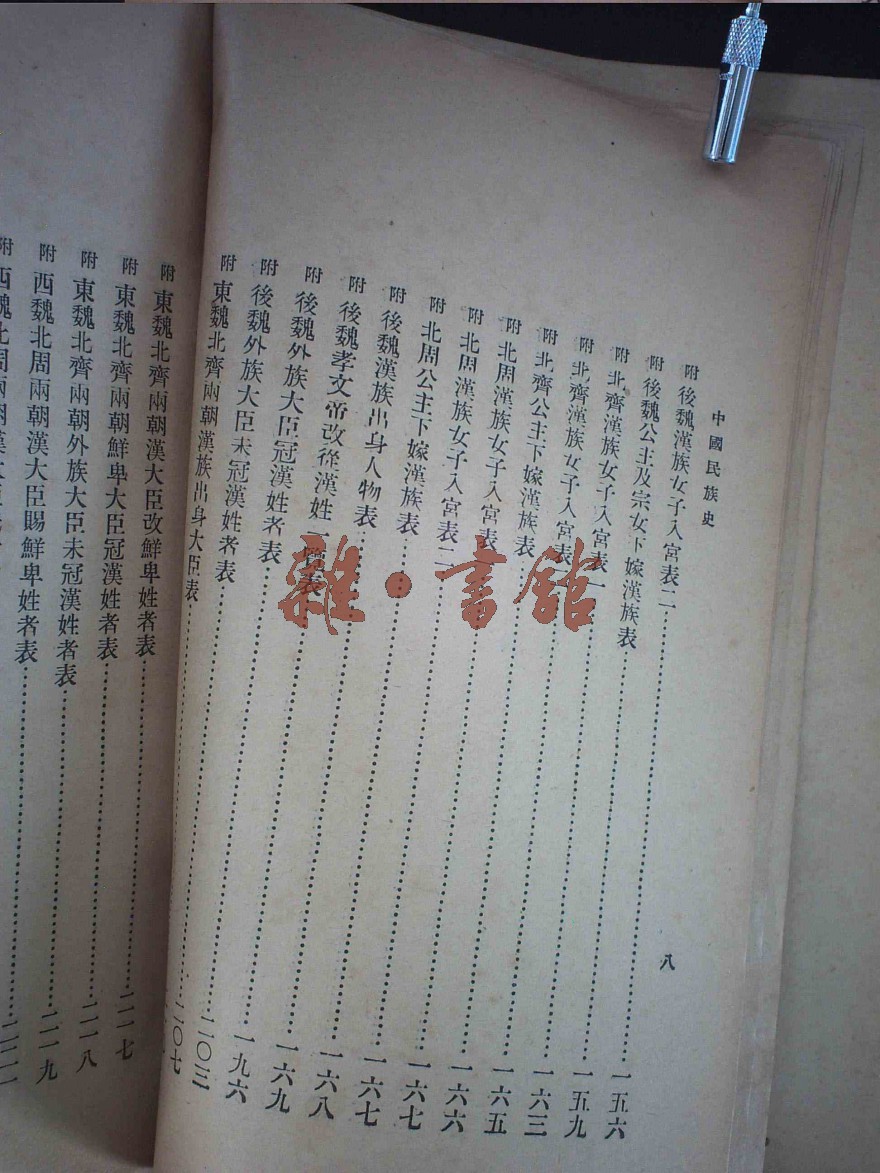 中國民族史
附 後魏漢族女子入宮表二……一五六
附 後魏公主及宗女下嫁漢族表……一五九
附 北齊漢族女子入宮表一……一六三
附 北齊漢族女子入宮表……一六五
附 北齊公主下嫁漢族表……一六六
附 北周漢族女子入宮表……一六七
附 北周漢族女子入宮表二……一六七
附 北周公主下嫁漢族表……一六八
附 後魏漢族出身人物表……一六九
附 後魏孝文帝改從漢姓一覽表……一九六
附 後魏外族大臣冠漢姓者表……二〇三
附 後魏外族大臣未冠漢姓者表……二〇七
附 東魏北齊兩朝漢族出身大臣表……
八
附 東魏北齊兩朝漢大臣改鮮卑姓者表
附 東魏北齊兩朝鮮卑大臣冠漢姓者表……二一七
附 東魏北齊兩朝外族大臣未冠漢姓者表……二一八
附 西魏北周兩朝漢大臣賜鮮卑姓者表……二一九
附 西魏北周兩朝漢大臣
雜·書館